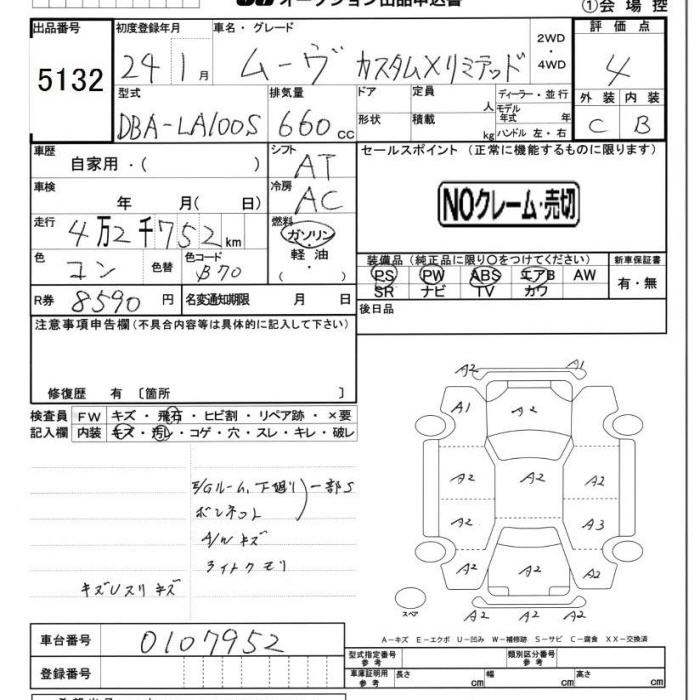 オークション出品申込書
①会場控
出品番号
5132
初度登録年月
24 1月
車名・グレード
ムーヴ カスタムXリミテッド
2WD
・
4WD
評価点
4
型式
DBA-LA100S
排気量
660cc
ドア
形状
定員
人
積載
kg
ディーラー・並行
モデル年式 年
ハンドル 左・右
外装 内装
C B
車歴
自家用・( )
シフト
AT
セールスポイント (正常に機能するものに限ります)
NOクレーム・売切
車検
年 月( 日)
冷房
AC
走行
4万2千752km
燃料
ガソリン
・
軽油
・
( )
色
コン
色替
色コード
B70
装備品(純正品に限り○をつけてください)
PS PW ABS エアB AW
SR ナビ TV カワ
新車保証書
有・無
R券 8590円
名変通知期限 月 日
後日品
注意事項申告欄(不具合内容等は具体的に記入して下さい)
修復歴 有〔箇所 〕
検査員
記入欄
FW キズ・飛石・ヒビ割・リペア跡・×要
内装 キズ・汚レ・コゲ・穴・スレ・キレ・破レ
E/Gルーム、下廻リ 一部S
ボンネット
A/Wキズ
ライトクモリ
キズUスリキズ
A2 A1
A1 A2
A2 A2 A2
A2 A3
A2 A2 A2
A2 A2 A2
スペア
A－キズ E－エクボ U－凹み W－補修跡 S－サビ C－腐食 XX－交換済
車台番号
0107952
登録番号
型式指定番号
参考
類別区分番号
参考
車庫証明用
参考
長さ cm
幅 cm
高さ cm